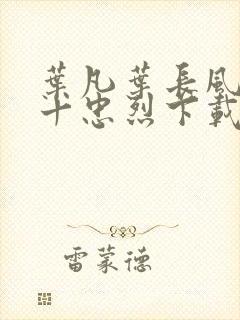 葉凡葉長風
十忠烈下載
雷蒙德